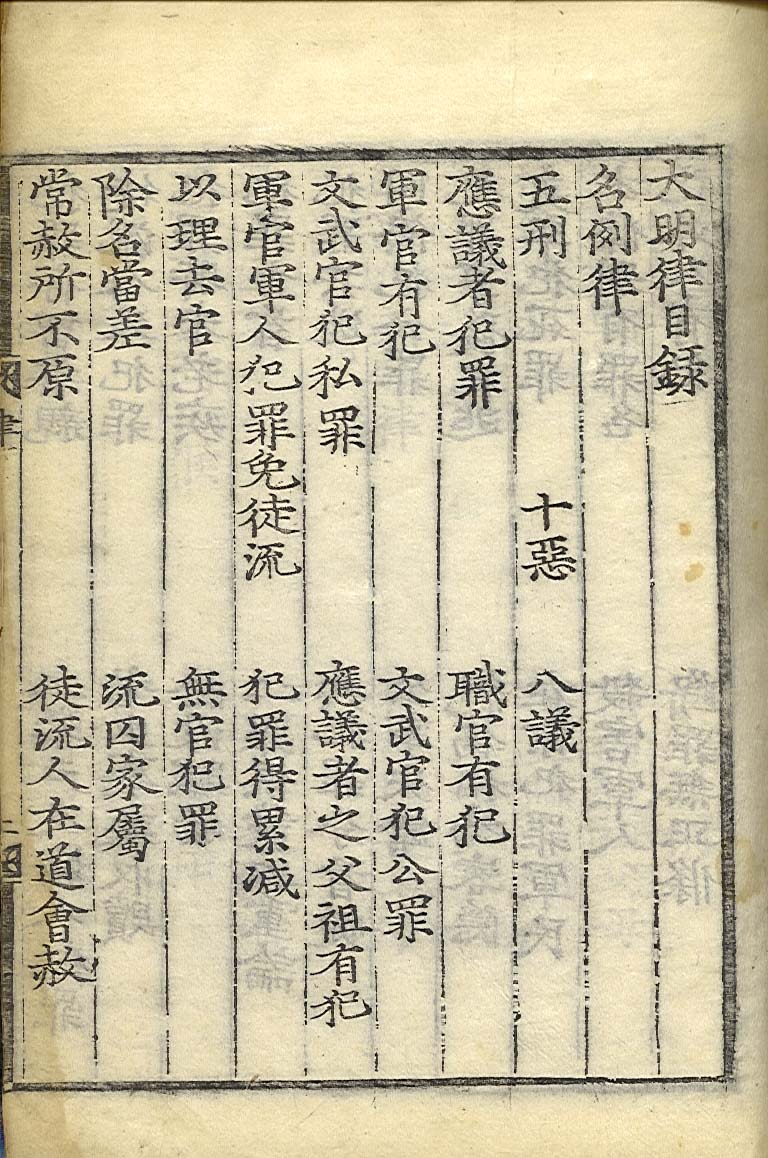 大明律目録
名例律
五刑 十惡 八議
應議者犯罪 職官有犯
軍官有犯 文武官犯公罪
文武官犯私罪 應議者之父祖有犯
軍官軍人犯罪免徒流 犯罪得累减
以理去官 無官犯罪
除名當差 流囚家屬
常赦所不原 徒流人在道會赦